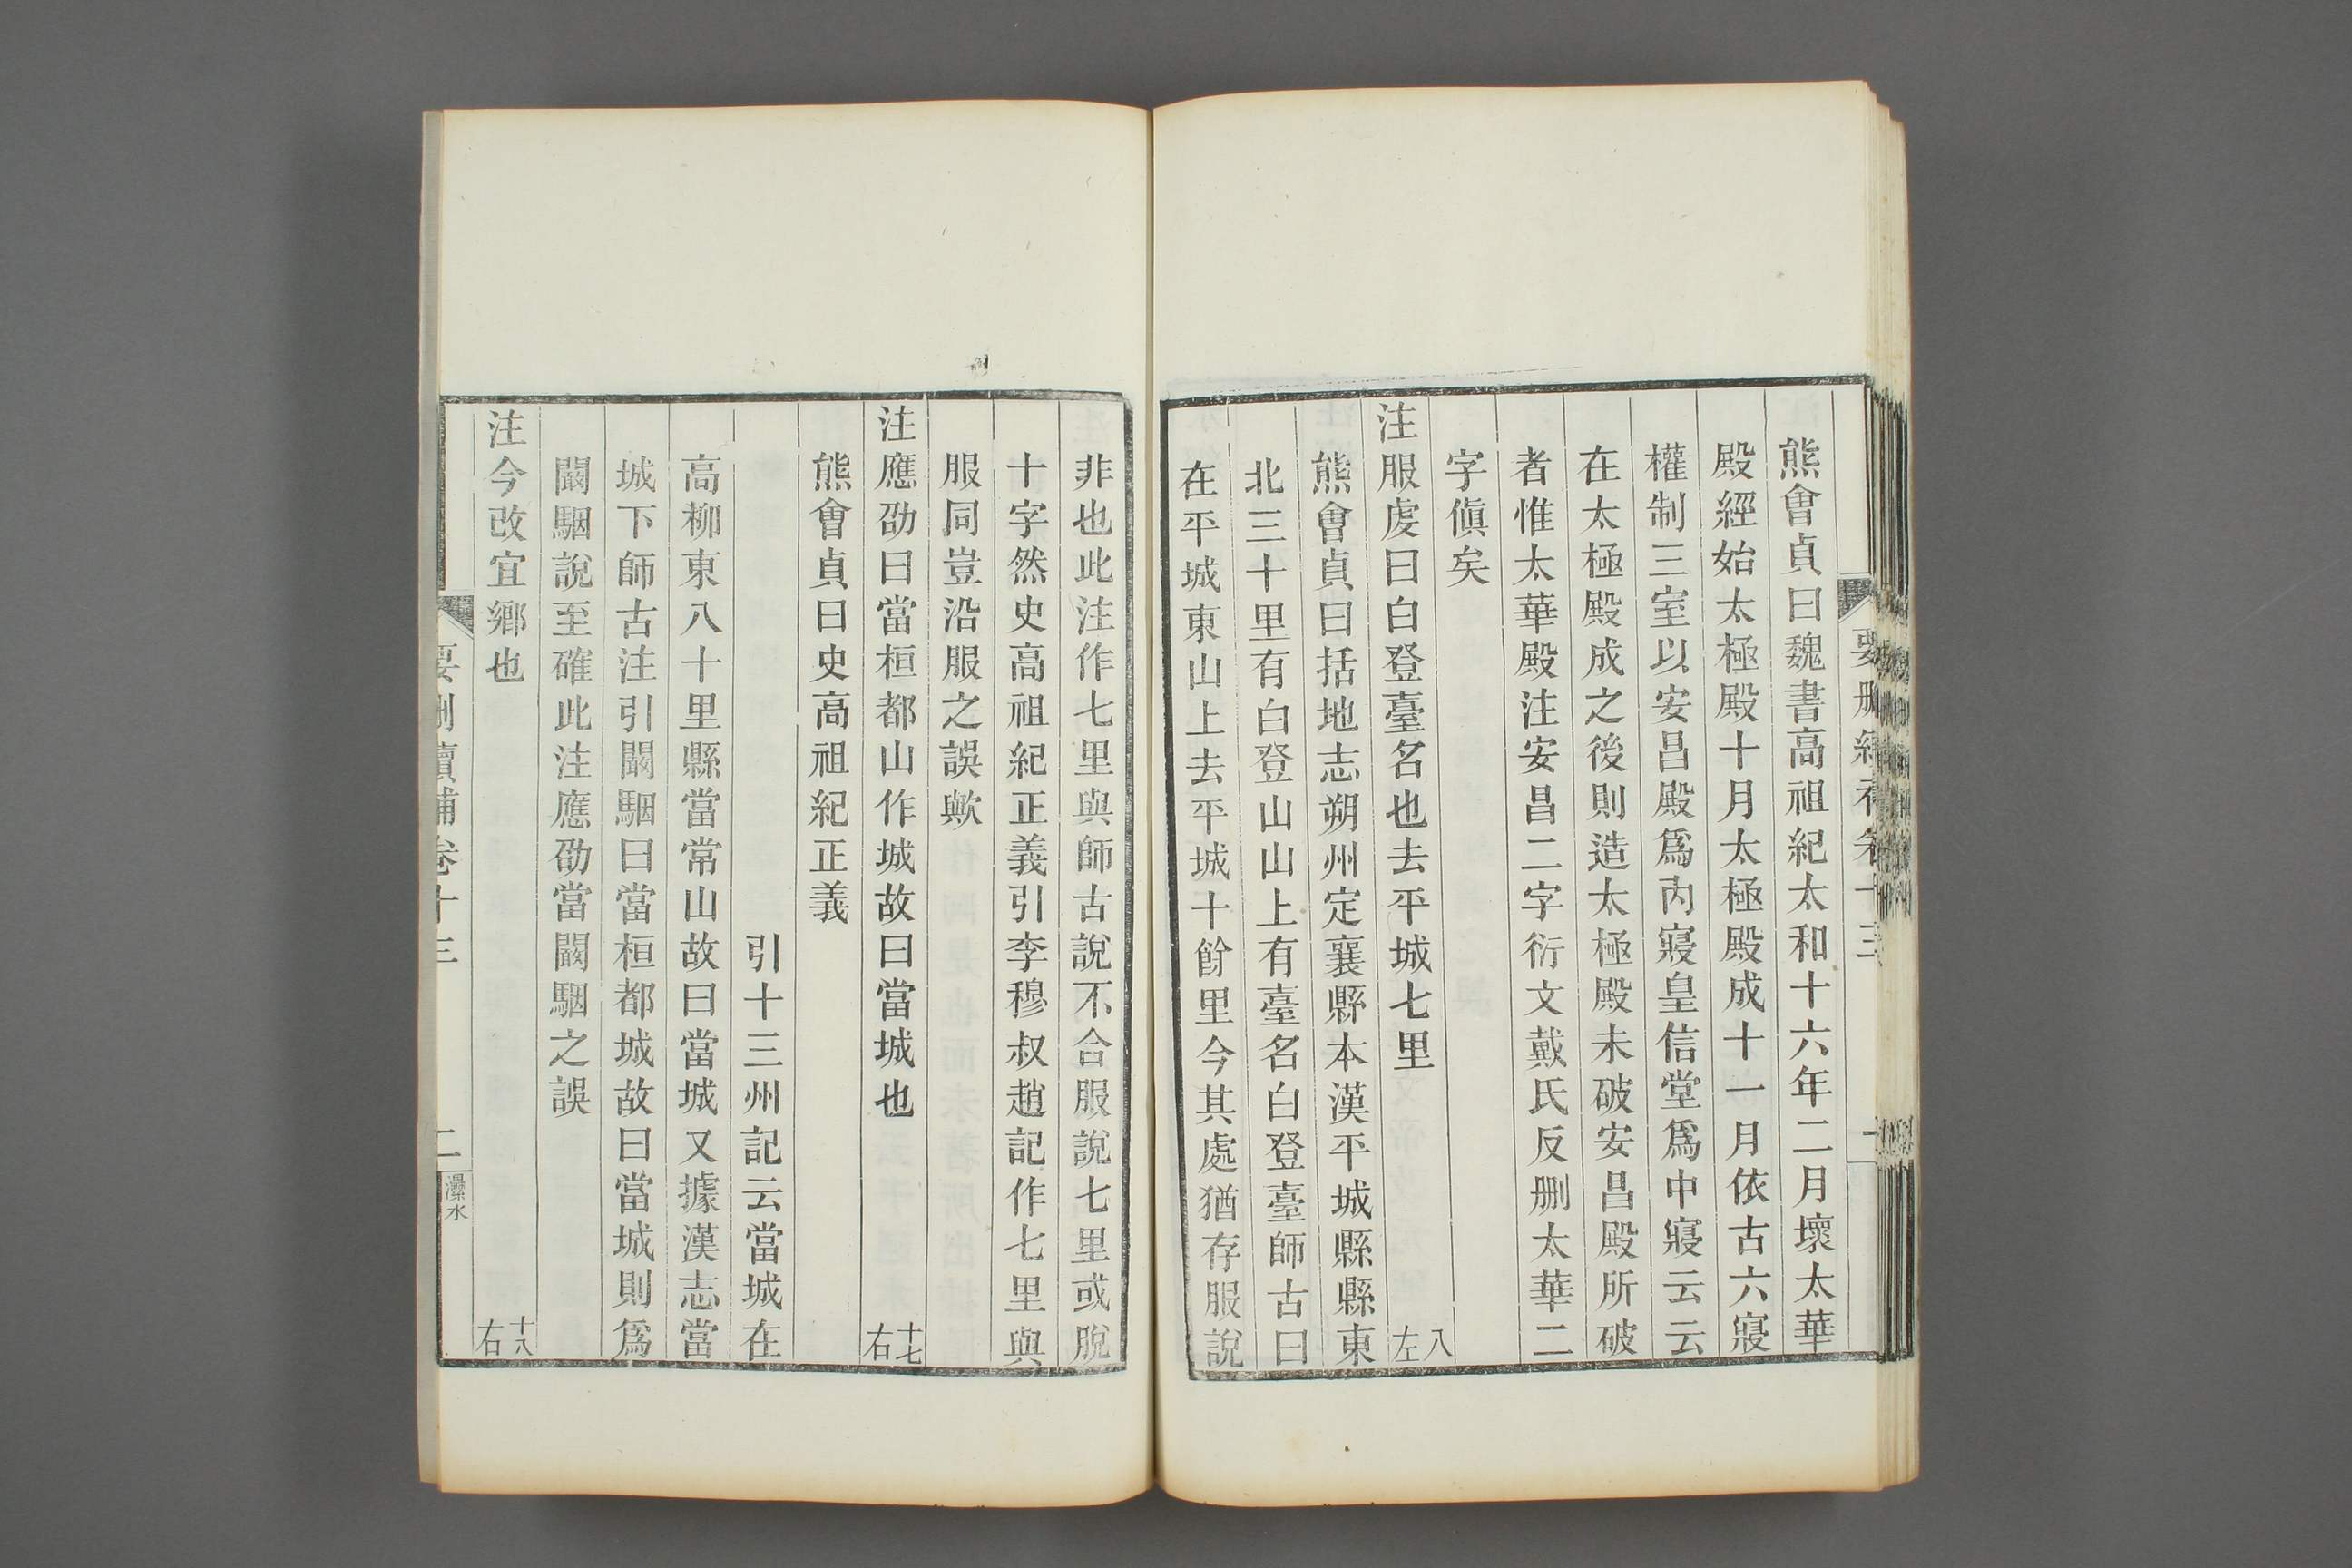 熊會貞曰魏書高祖紀太和十六年二月壞太華
殿經始太極殿十月太極殿成十一月依古六寢
權制三室以安昌殿爲內寢皇信堂爲中寢云云
在太極殿成之後則造太極殿未破安昌殿所破
者惟太華殿注安昌二字衍文戴氏反删太華二
字傎矣
注服虔曰白登臺名也去平城七里 八左
熊會貞曰括地志朔州定襄縣本漢平城縣縣東
北三十里有白登山山上有臺名白登臺師古曰
在平城東山上去平城十餘里今其處猶存服說
非也此注作七里與師古說不合服說七里或脫
十字然史高祖紀正義引李穆叔趙記作七里與
服同豈沿服之誤歟
注應劭曰當桓都山作城故曰當城也 十七右
熊會貞曰史高祖紀正義
引十三州記云當城在
高柳東八十里縣當常山故曰當城又據漢志當
城下師古注引闞駰曰當桓都城故曰當城則爲
闞駰說至確此注應劭當闞駰之誤
注今改宜鄉也 十八右
要删續補卷十三 二 㶟水